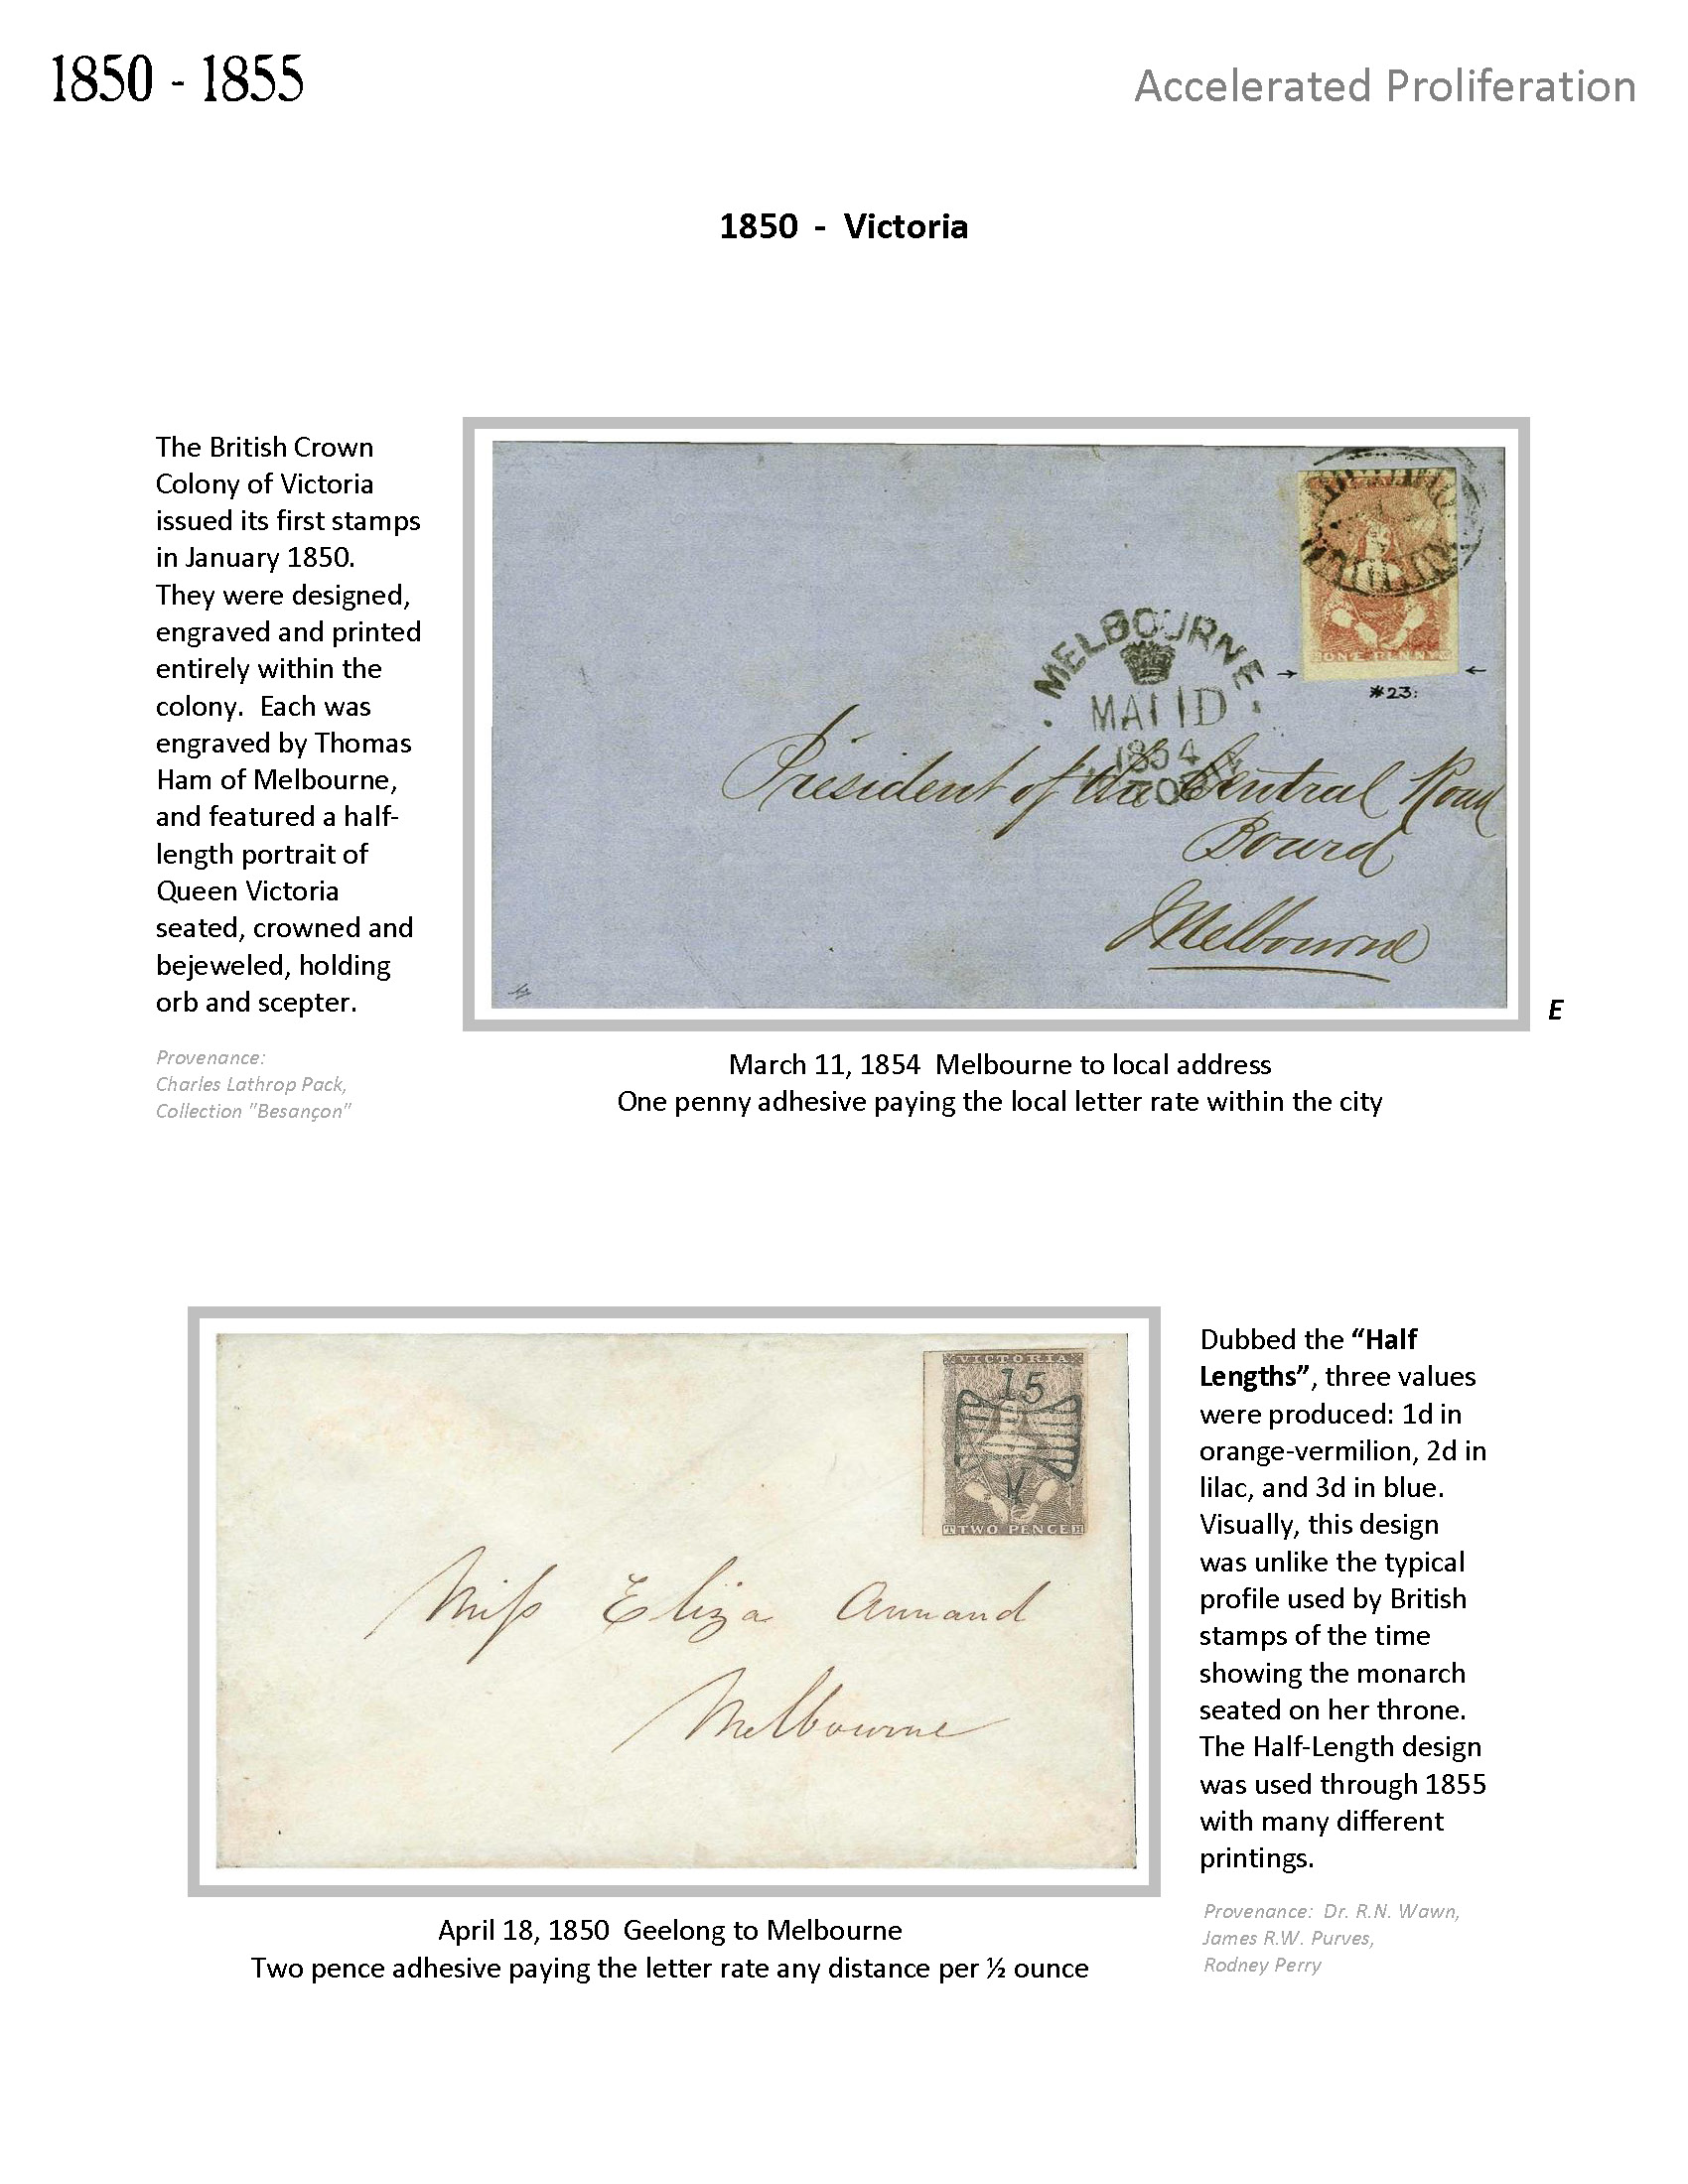 1850 - 1855
Accelerated Proliferation
1850 - Victoria
The British Crown
Colony of Victoria
issued its first stamps
in January 1850.
They were designed,
engraved and printed
entirely within the
colony. Each was
engraved by Thomas
Ham of Melbourne,
and featured a half-
length portrait of
Queen Victoria
seated, crowned and
bejeweled, holding
orb and scepter.
Provenance:
Charles Lathrop Pack,
Collection "Besançon"
ONE PENNY
*23:
MELBOURNE
1854
President of the Central Road
Board
Melbourne
E
March 11, 1854 Melbourne to local address
One penny adhesive paying the local letter rate within the city
VICTORIA
15
V
TWO PENCE
Miss Eliza Annand
Melbourne
April 18, 1850 Geelong to Melbourne
Two pence adhesive paying the letter rate any distance per ½ ounce
Dubbed the “Half
Lengths”, three values
were produced: 1d in
orange-vermilion, 2d in
lilac, and 3d in blue.
Visually, this design
was unlike the typical
profile used by British
stamps of the time
showing the monarch
seated on her throne.
The Half-Length design
was used through 1855
with many different
printings.
Provenance: Dr. R.N. Wawn,
James R.W. Purves,
Rodney Perry